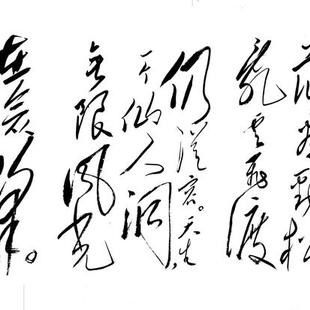 茫看劲松
乱云飞渡
仍從容。天生
一个仙人洞
无限風光
在险峰。